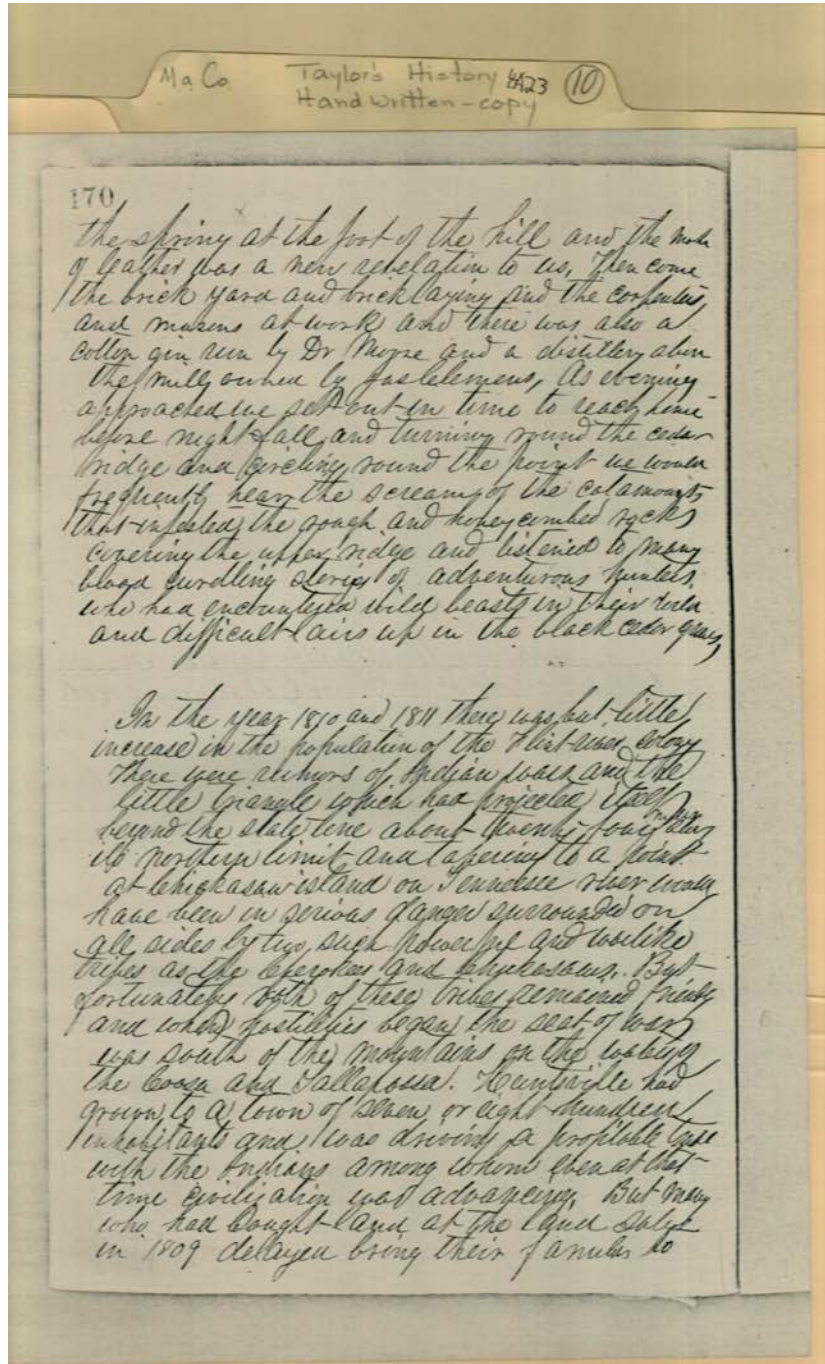 Ma. Co. Taylor's History 4A23 10
Hand written - copy
170
the spring at the foot of the hill and the
of leather was a new revelation to us, Then come
the brick yard and bricklaying and the carpenters
and masons at work and there was also a
cotton gin run by Dr Moore and a distillery above
the mill owned by Jas Clemens, As evening
approached we set out in time to reach home
before night fall and turning round the cedar
ridge and circling round the point we would
frequently hear the screams of the catamounts
that infested the rough and honeycombed rocks
covering the upper ridge and listened to many
blood curdling stories of adventurous hunters,
who had encountered wild beasts in their
and difficult lairs up in the black cedar
In the year 1810 and 1811 there was but little
increase in the population of the Flint river colony
There were rumors of Indian wars and the
little triangle which had projected itself
beyond the state line about twenty four
its northern limit and tapering to a point
at Chickasaw island on Tennessee river would
have been in serious danger surrounded on
all sides by two such powerful and warlike
tribes as the Cherokees and Chickasaws. But
fortunately both of these tribes remained friendly
and when hostilities began the seat of war
was south of the mountains on the waters of
the Coosa and Tallapoosa. Huntsville had
grown to a town of seven or eight hundred
inhabitants and was driving a profitable trade
with the Indians among whom even at that
time civilization was advancing. But many
who had bought land at the land sales
in 1809 delayed bring their families to